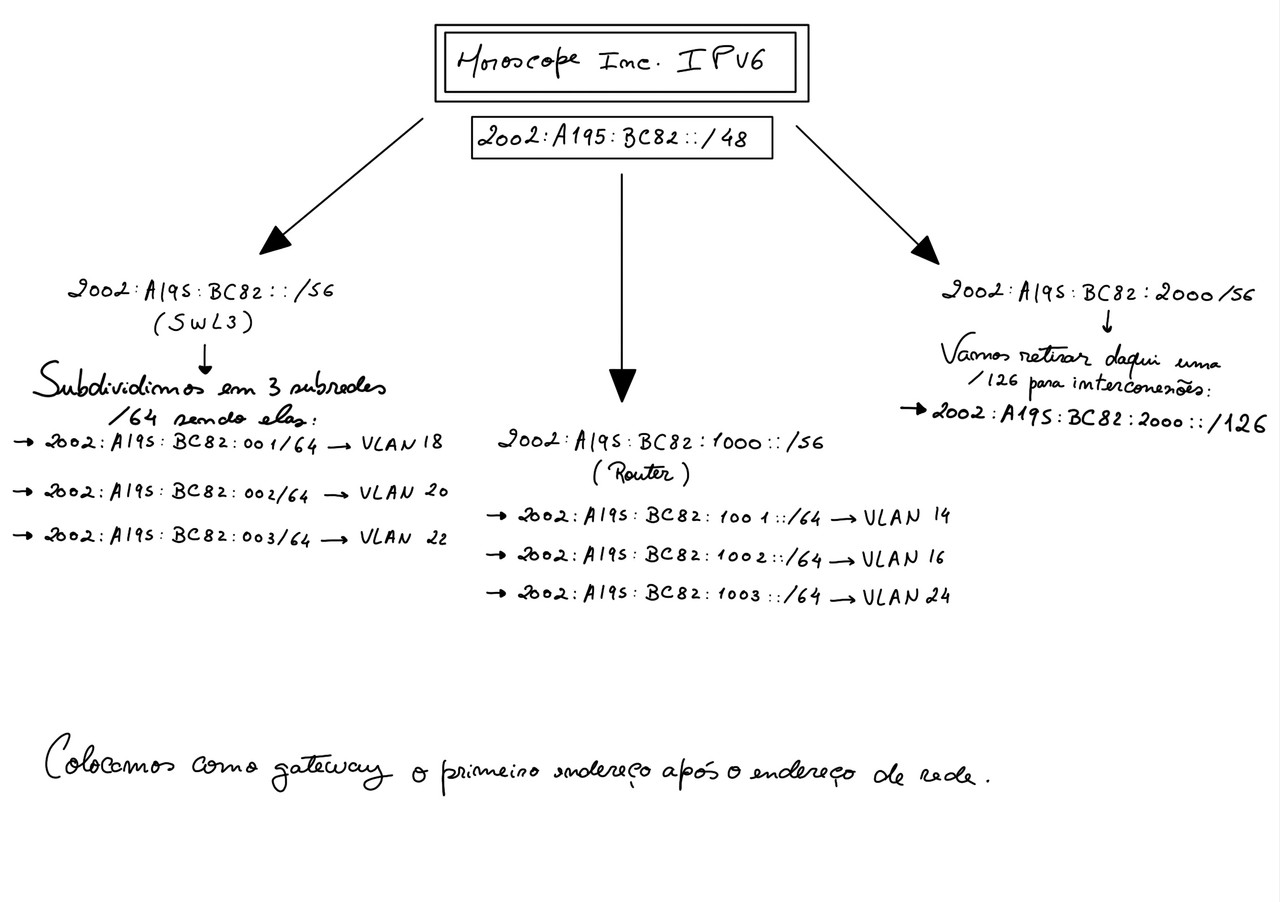 Horoscope Inc. IPV6
2002:A195:BC82::/48
2002:A195:BC82::/56
(SWL3)
Subdividimos em 3 subredes
/64 sendo elas:
→ 2002:A195:BC82:001/64 → VLAN 18
→ 2002:A195:BC82:002/64 → VLAN 20
→ 2002:A195:BC82:003/64 → VLAN 22
2002:A195:BC82:1000::/56
(Router)
→ 2002:A195:BC82:1001::/64 → VLAN 14
→ 2002:A195:BC82:1002::/64 → VLAN 16
→ 2002:A195:BC82:1003::/64 → VLAN 24
2002:A195:BC82:2000/56
Vamos retirar daqui uma
/126 para interconexões:
→ 2002:A195:BC82:2000::/126
Colocamos como gateway o primeiro endereço após o endereço de rede.